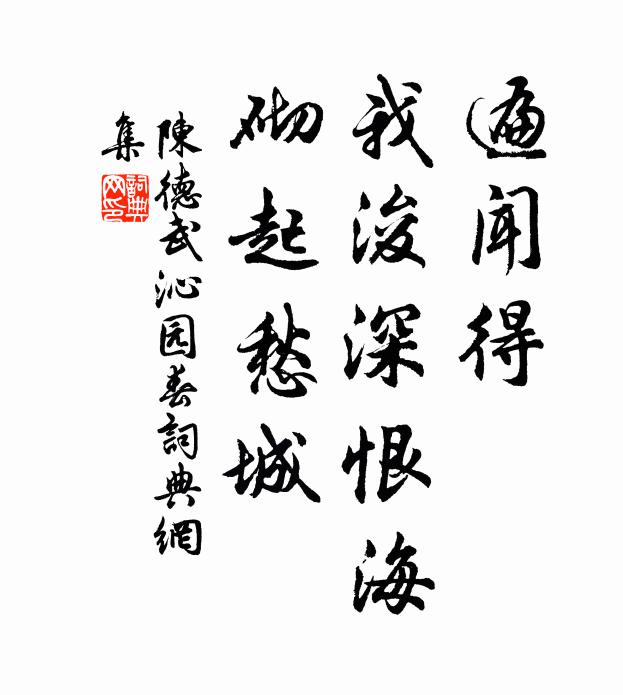 遍闻得
我浚深恨海
砌起愁城
陳德武沁园春詞典網
集
詞典网印